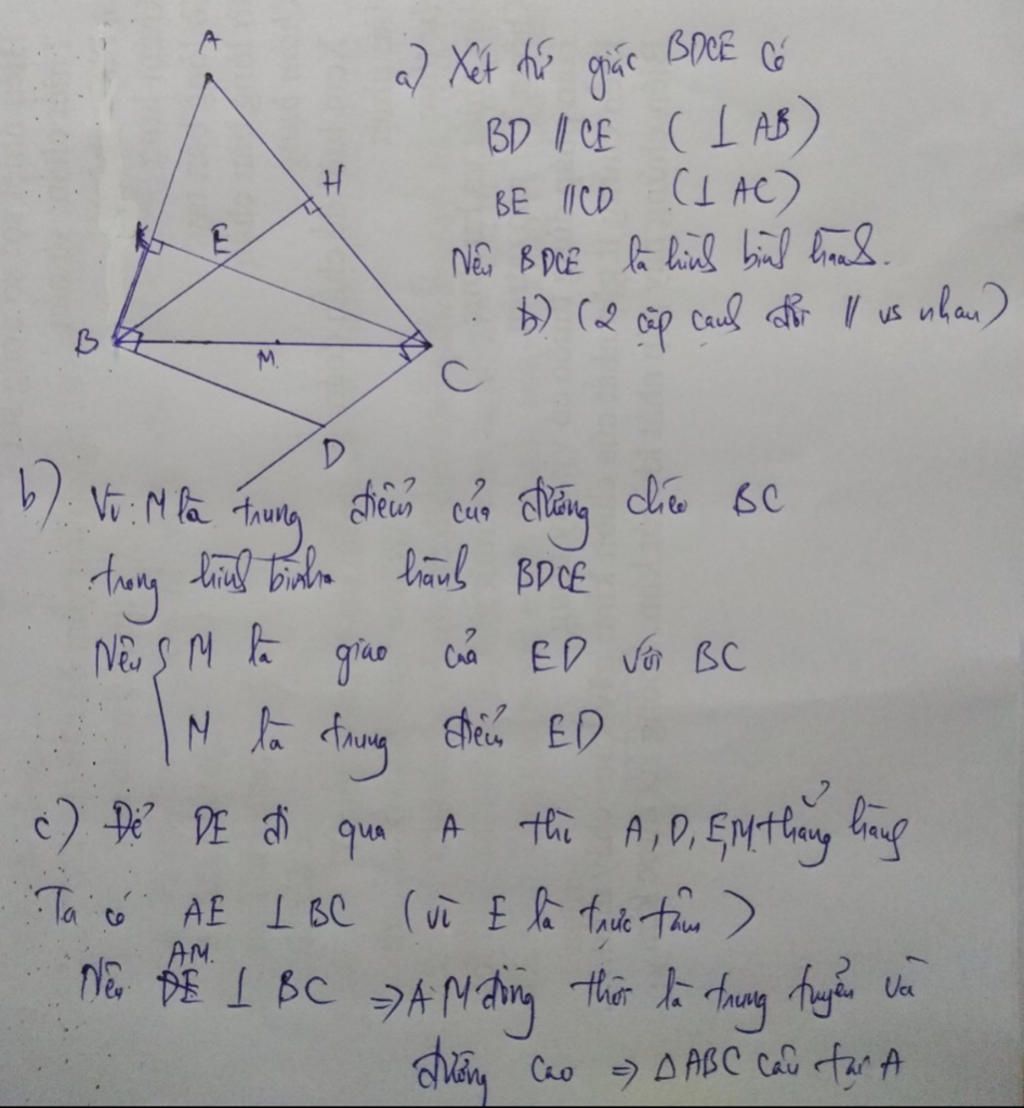 A
H
K
E
B
M
C
D
a) Xét tứ giác BDCE có
BD // CE (⊥ AB)
BE // CD (⊥ AC)
Nên BDCE là hình bình hành.
b) (2 cặp cạnh đối // vs nhau)
b) Vì M là trung điểm của đường chéo BC
trong hình bình hành BDCE
Nên { M là giao của ED với BC
M là trung điểm ED
c) Để DE đi qua A thì A, D, E, M thẳng hàng
Ta có AE ⊥ BC (vì E là trực tâm)
AM.
Nên DE ⊥ BC ⇒ AM đồng thời là trung tuyến và
đường cao ⇒ △ABC cân tại A